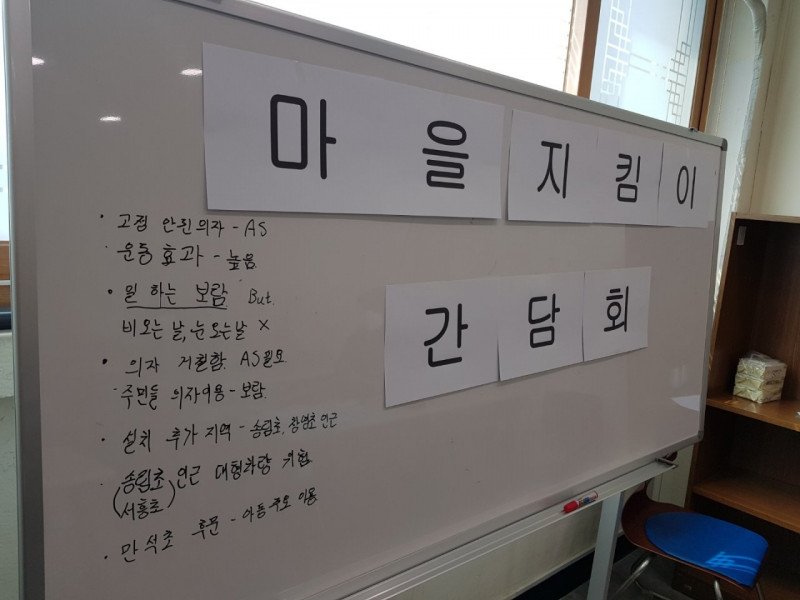 마을지킴이
간담회
· 고정 안된의자 - AS
· 운동 효과 - 높음
· 일 하는 보람 But.
비오는날, 눈오는날 X
· 의자 거철함. AS필요
· 주민들 의자이용 - 보람
· 설치 추가 지역 - 송림초, 창영초 인근
· 송림초 인근 대형차량 위험
(서흥초)
· 만석초 후문 - 아동 주로 이용